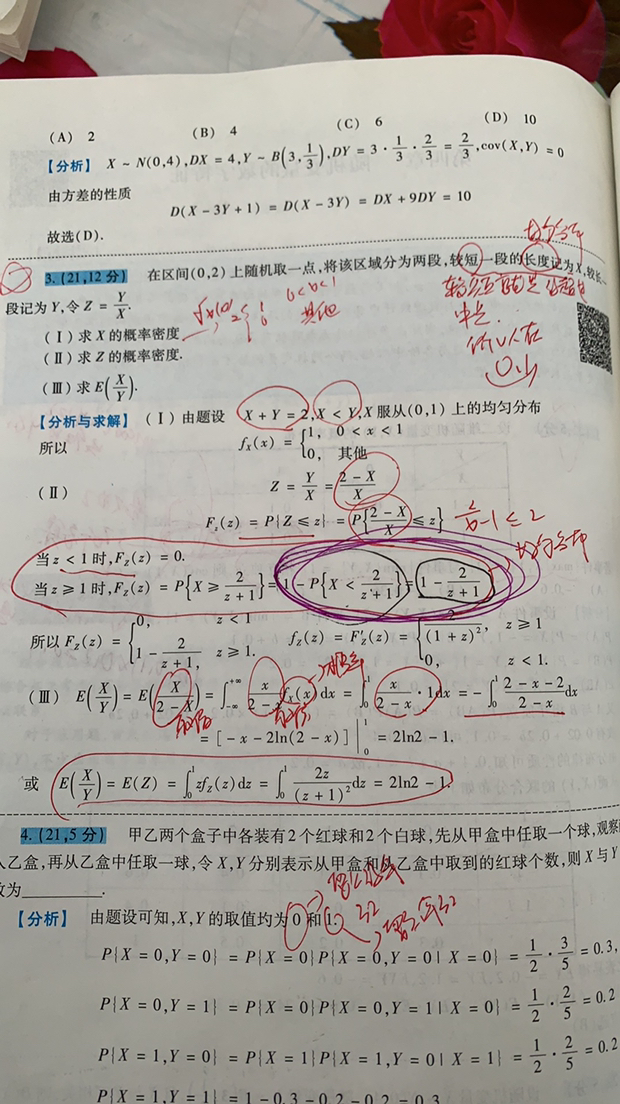 (A) 2 (B) 4 (C) 6 (D) 10
【分析】 X ~ N(0,4), DX = 4, Y ~ B(3, 1/3), DY = 3 · 1/3 · 2/3 = 2/3, cov(X,Y) = 0
由方差的性质
D(X − 3Y + 1) = D(X − 3Y) = DX + 9DY = 10
故选(D).
均匀分布
3. (21,12分) 在区间(0,2)上随机取一点,将该区域分为两段,较短一段的长度记为X,较长一
段记为Y,令 Z = Y/X.
0<x<1
其他
(Ⅰ)求 X 的概率密度
(Ⅱ)求 Z 的概率密度.
(Ⅲ)求 E(X/Y).
【分析与求解】 (Ⅰ)由题设 X + Y = 2, X < Y, X 服从(0,1)上的均匀分布
所以 f_X(x) = {1, 0 < x < 1
0, 其他
(Ⅱ) Z = Y/X = (2 − X)/X
F_z(z) = P{Z ≤ z} = P{(2 − X)/X ≤ z}
当 z < 1 时, F_Z(z) = 0.
均匀分布
当 z ≥ 1 时, F_Z(z) = P{X ≥ 2/(z+1)} = 1 − P{X < 2/(z+1)} = 1 − 2/(z+1)
所以 F_Z(z) = {0, z < 1
1 − 2/(z+1), z ≥ 1.
f_Z(z) = F′_Z(z) = {2/(1+z)², z ≥ 1
0, z < 1.
(Ⅲ) E(X/Y) = E(X/(2−X)) = ∫_{−∞}^{+∞} x/(2−x) f_X(x) dx = ∫_0^1 x/(2−x) · 1dx = −∫_0^1 (2−x−2)/(2−x) dx
= [−x − 2ln(2 − x)] |_0^1 = 2ln2 − 1.
或 E(X/Y) = E(Z) = ∫_0^1 zf_Z(z)dz = ∫_0^1 2z/(z+1)² dz = 2ln2 − 1.
4. (21,5分) 甲乙两个盒子中各装有2个红球和2个白球,先从甲盒中任取一个球,观察
入乙盒,再从乙盒中任取一球,令 X,Y 分别表示从甲盒和从乙盒中取到的红球个数,则 X 与 Y
数为________.
【分析】 由题设可知,X,Y 的取值均为 0 和 1.
P{X = 0,Y = 0} = P{X = 0}P{X = 0,Y = 0 | X = 0} = 1/2 · 3/5 = 0.3,
P{X = 0,Y = 1} = P{X = 0}P{X = 0,Y = 1 | X = 0} = 1/2 · 2/5 = 0.2
P{X = 1,Y = 0} = P{X = 1}P{X = 1,Y = 0 | X = 1} = 1/2 · 2/5 = 0.2
P{X = 1,Y = 1} = 1 − 0.3 − 0.2 − 0.2 = 0.3